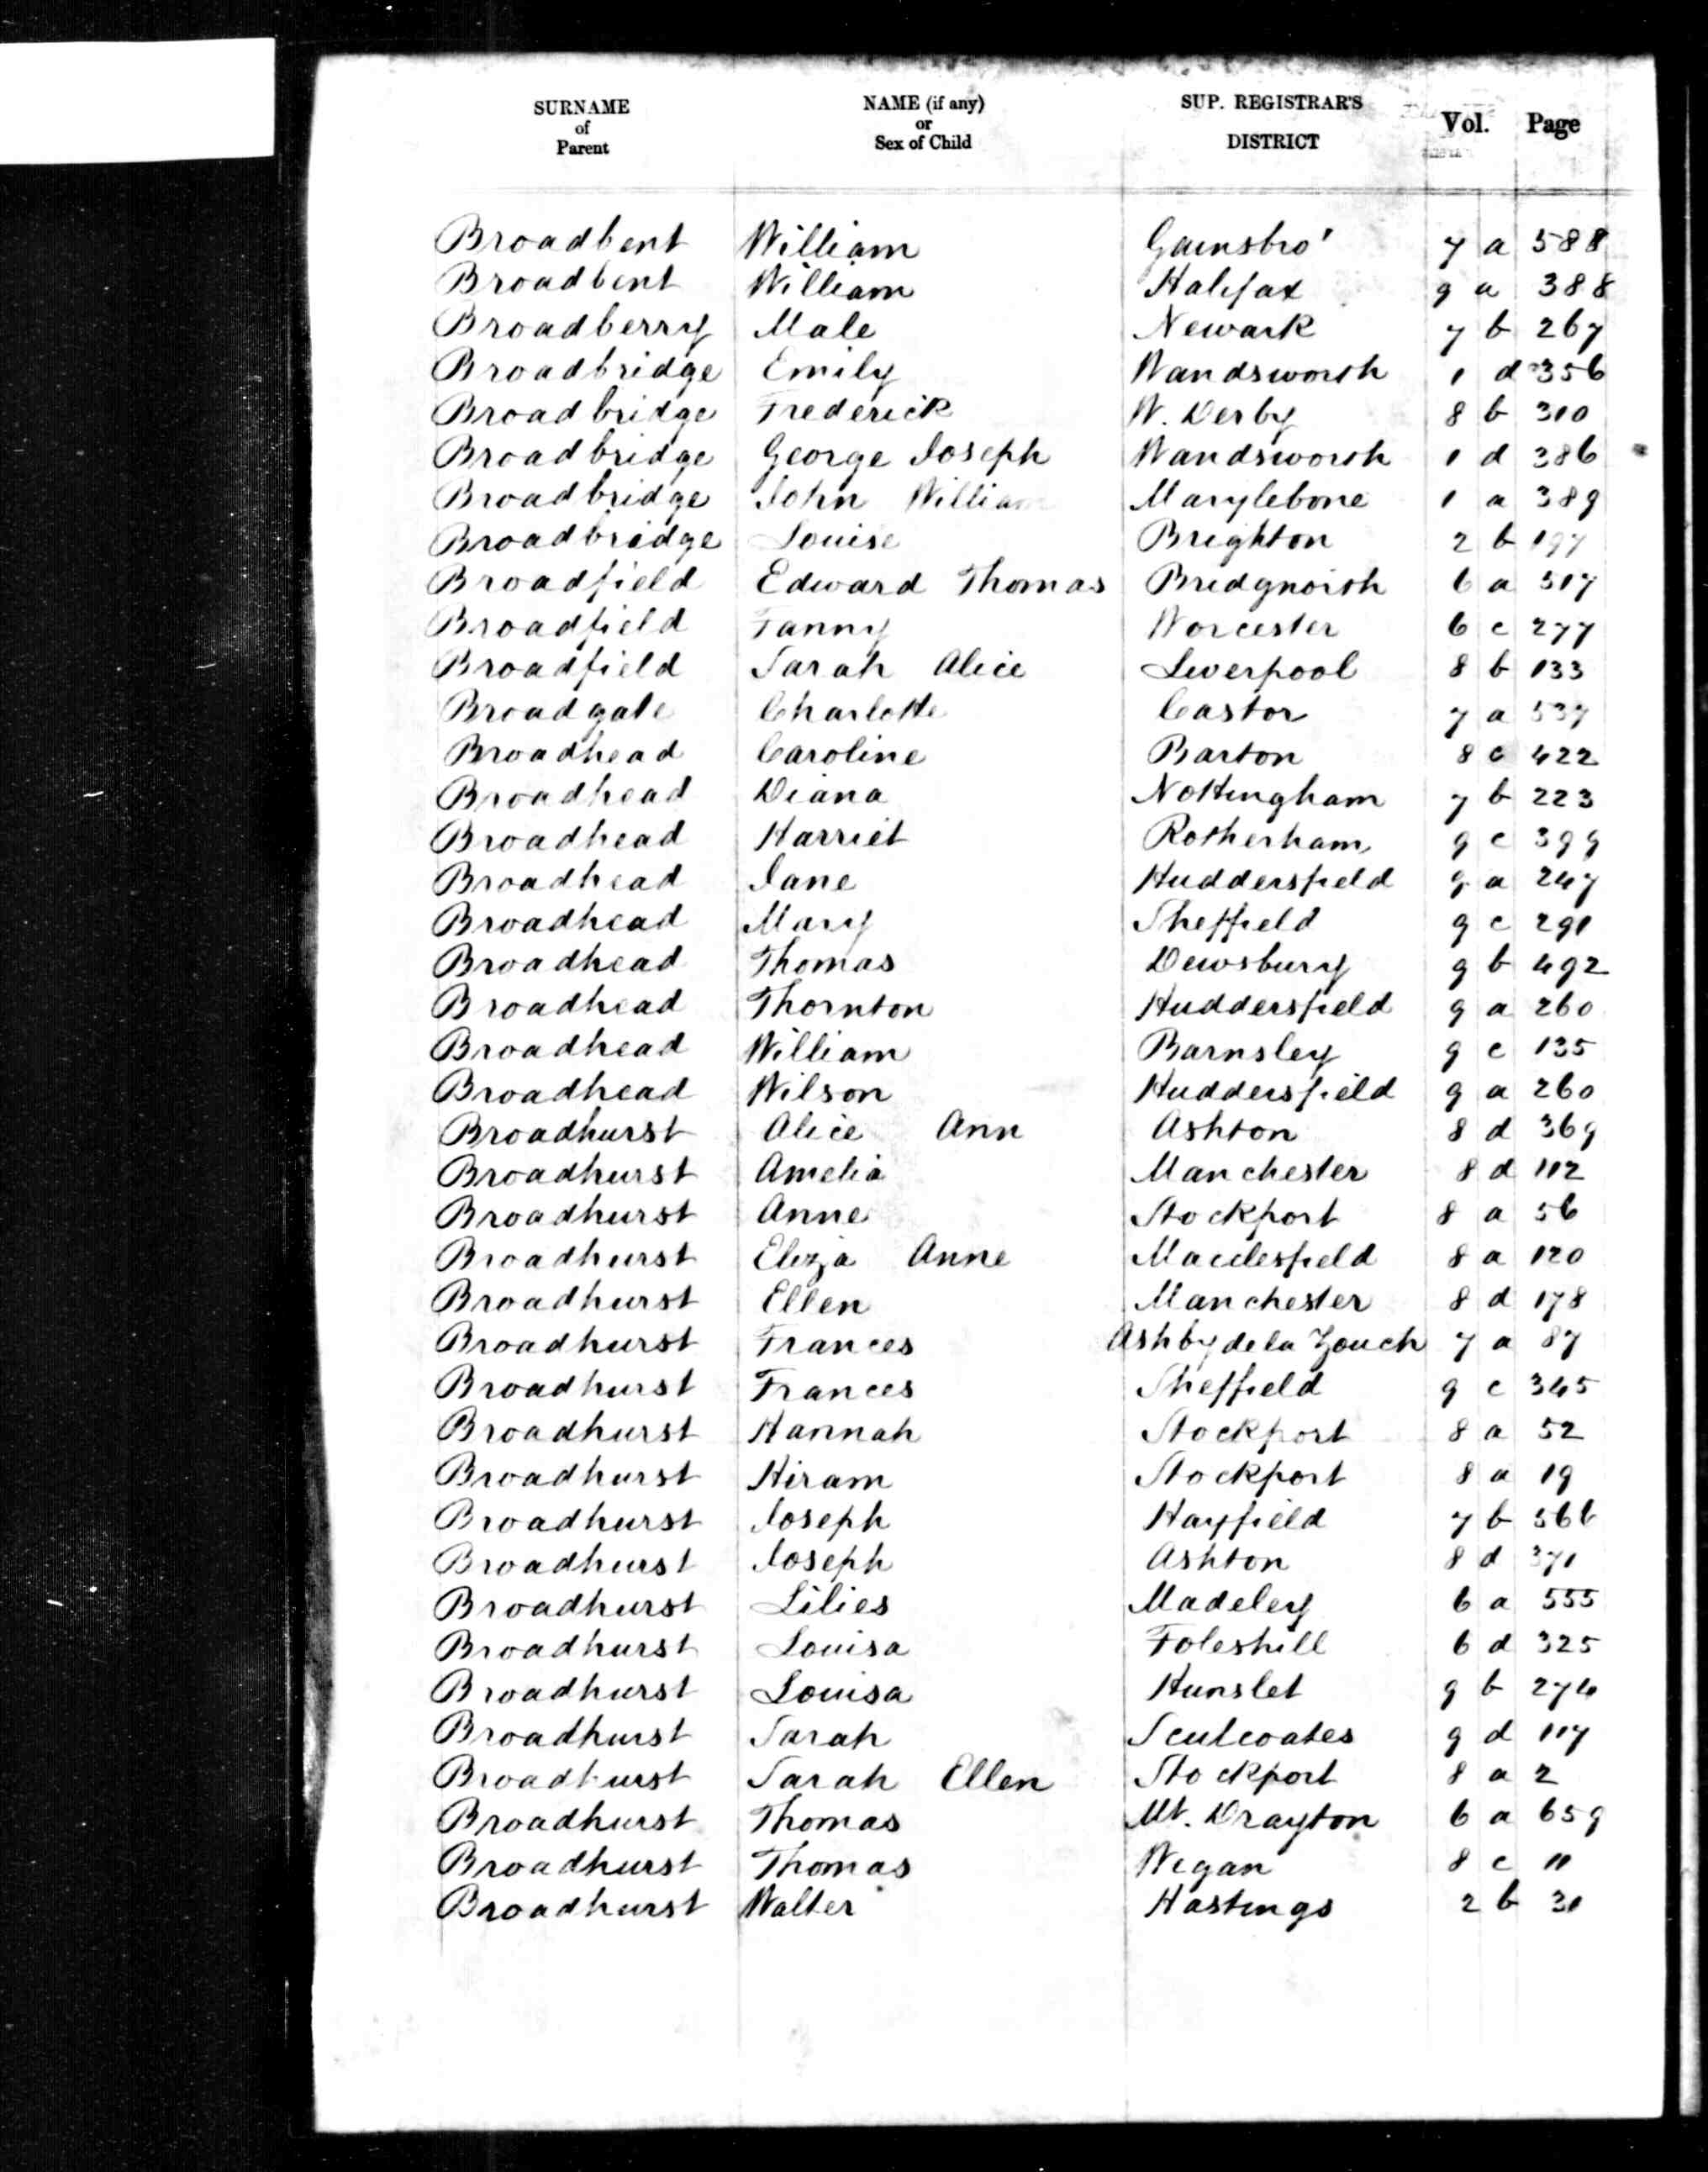 SURNAME of Parent NAME (if any) or Sex of Child SUP. REGISTRAR'S DISTRICT Vol. Page
Broadbent William Gainsbro' 7 a 588
Broadbent William Halifax 9 a 388
Broadberry Male Newark 7 b 267
Broadbridge Emily Wandsworth 1 d 356
Broadbridge Frederick W. Derby 8 b 310
Broadbridge George Joseph Wandsworth 1 d 386
Broadbridge John William Marylebone 1 a 389
Broadbridge Louise Brighton 2 b 197
Broadfield Edward Thomas Bridgnorth 6 a 517
Broadfield Fanny Worcester 6 c 277
Broadfield Sarah Alice Liverpool 8 b 133
Broadgate Charlotte Castor 7 a 537
Broadhead Caroline Barton 8 c 422
Broadhead Diana Nottingham 7 b 223
Broadhead Harriet Rotherham 9 c 399
Broadhead Jane Huddersfield 9 a 247
Broadhead Mary Sheffield 9 c 291
Broadhead Thomas Dewsbury 9 b 492
Broadhead Thornton Huddersfield 9 a 260
Broadhead William Barnsley 9 c 135
Broadhead Wilson Huddersfield 9 a 260
Broadhurst Alice Ann Ashton 8 d 369
Broadhurst Amelia Manchester 8 d 112
Broadhurst Anne Stockport 8 a 56
Broadhurst Eliza Anne Macclesfield 8 a 120
Broadhurst Ellen Manchester 8 d 178
Broadhurst Frances Ashby de la Zouch 7 a 87
Broadhurst Frances Sheffield 9 c 345
Broadhurst Hannah Stockport 8 a 52
Broadhurst Hiram Stockport 8 a 19
Broadhurst Joseph Hayfield 7 b 566
Broadhurst Joseph Ashton 8 d 371
Broadhurst Lilies Madeley 6 a 555
Broadhurst Louisa Foleshill 6 d 325
Broadhurst Louisa Hunslet 9 b 274
Broadhurst Sarah Sculcoates 9 d 117
Broadhurst Sarah Ellen Stockport 8 a 2
Broadhurst Thomas Mt. Drayton 6 a 659
Broadhurst Thomas Wigan 8 c 11
Broadhurst Walter Hastings 2 b 31